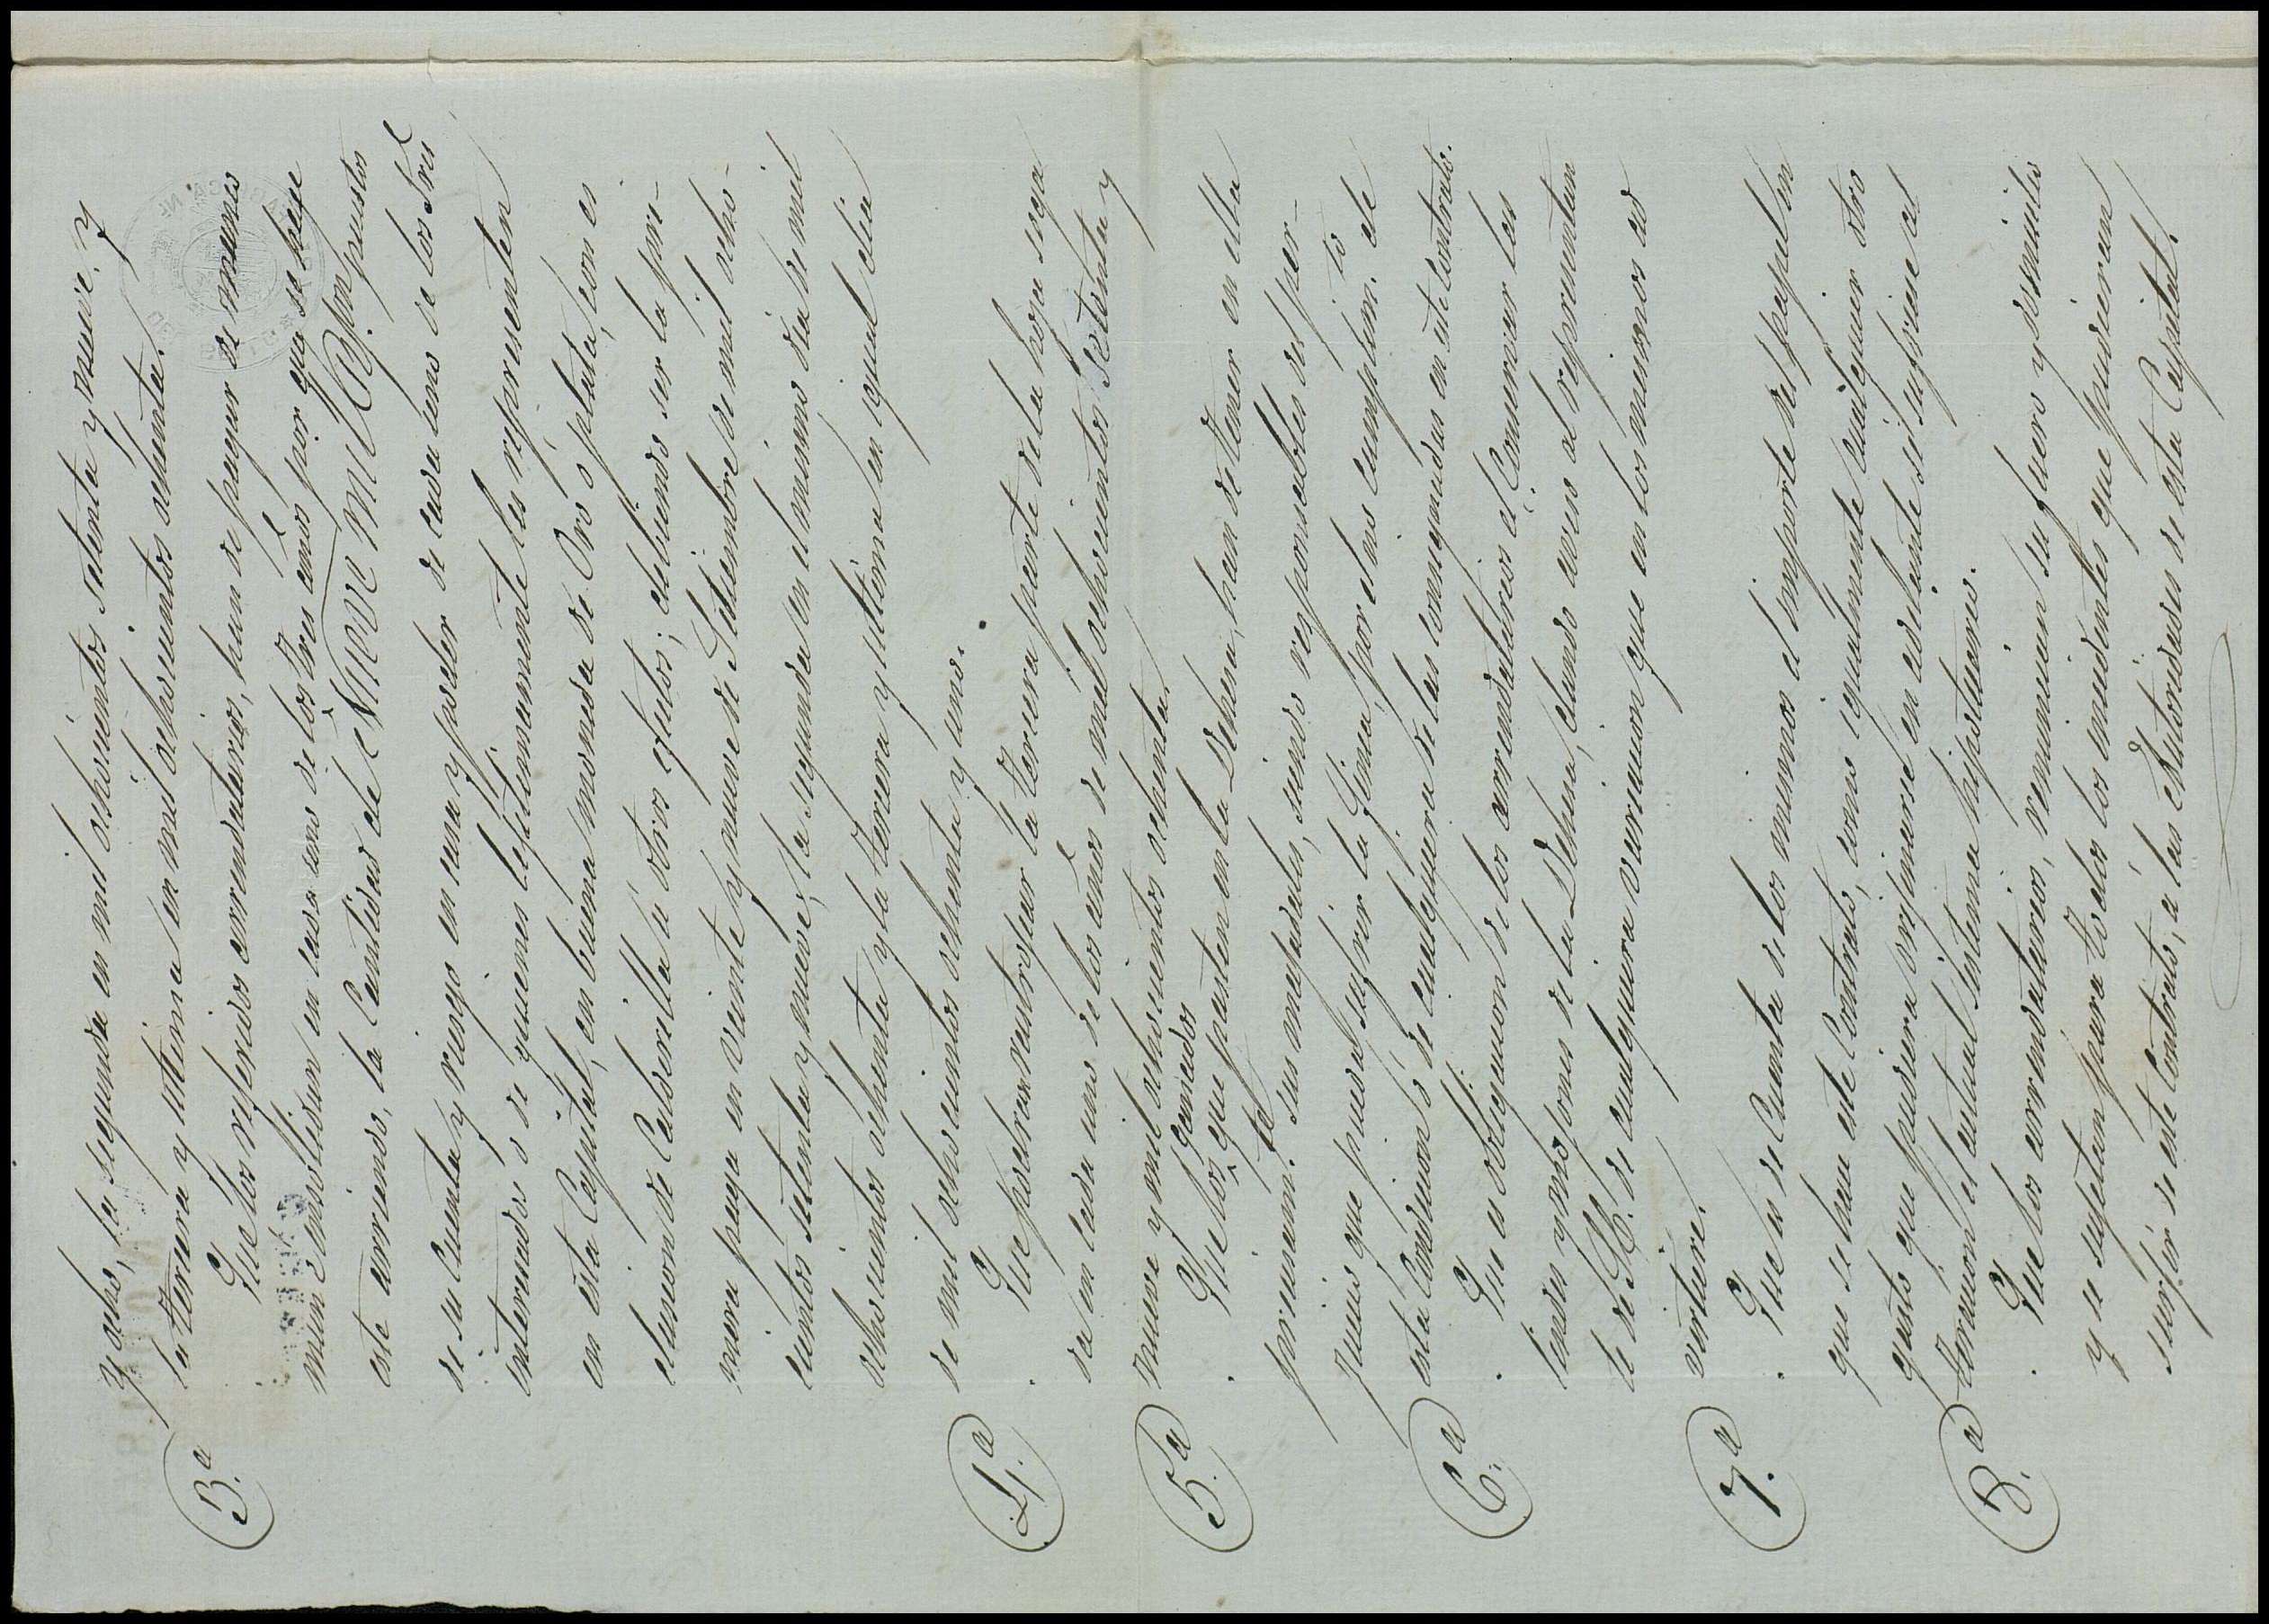 y ocho, la segunda en mil ochocientos setenta y nueve, y
la tercera y última en mil ochocientos ochenta.
3.ª Que los referidos arrendatarios, han de pagar de mancomun
é insolidum en cada uno de los tres años por que se hace
este arriendo, la Cantidad de Nueve mil R.s puestos
de su Cuenta y riesgo en casa y poder de cada uno de los Sres
interesados ó de quienes legitimamente les representen
en esta Capital, en buena moneda de Oro ó plata, con es
clusion de Calderilla ú otros efectos; debiendo ser la pri-
mera paga en veinte y nueve de Setiembre de mil ocho-
cientos setenta y nueve, la segunda en el mismo dia de mil
ochocientos ochenta y la tercera y última en igual dia
de mil ochocientos ochenta y uno.
4.ª Que podran rastrojear la tercera parte de la hoja sega
da en cada uno de los años de mil ochocientos setenta y
nueve y mil ochocientos ochenta.
5.ª Que los ganados que pasten en la Dehesa, han de tener en ella
precisam.te sus majadales, siendo responsables del per-
juicio que pueda sufrir la finca, por el no cumplim.to de
esta Condicion ó de cualquiera de las consignadas en este Contrato.
6.ª Que es obligacion de los arrendatarios el Conservar las
lindes y mojones de la Dehesa, dando aviso al representan
te de SS. de cualquiera variacion que en los mismos ad
virtiere.
7.ª Que es de Cuenta de los mismos el importe del papel en
que se hace este Contrato, como igualmente cualquier otro
gasto que pudiera originarse en adelante si sufriese al
teracion el actual sistema hipotecario.
8.ª Que los arrendatarios, renuncian su fuero y domicilio
y se sujetan para todos los incidentes que pudieran
surgir de este Contrato, á las Autoridades de esta Capital.